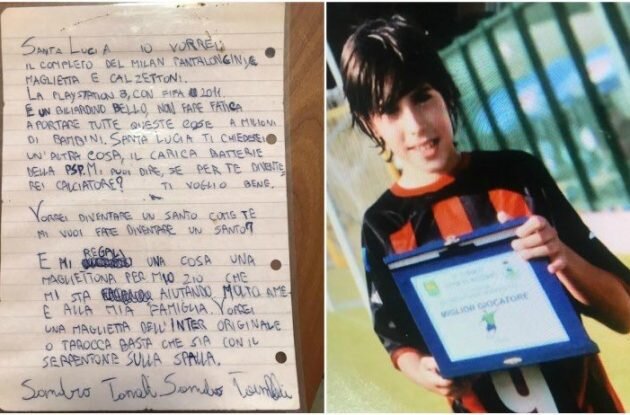 SANTA LUCIA IO VORREI
IL COMPLETO DEL MILAN PANTALONCINI, E
MAGLIETTA E CALZETTONI.
LA PLAYSTATION 3, CON FIFA 2011.
E UN BILIARDINO BELLO, NON FARE FATICA
A PORTARE TUTTE QUESTE COSE A MILIONI
DI BAMBINI. SANTA LUCIA TI CHIEDEREI
UN'ALTRA COSA, IL CARICA BATTERIE
DELLA PSP. MI PUOI DIRE, SE PER TE DIVENTE-
REI CALCIATORE? TI VOGLIO BENE.
VORREI DIVENTARE UN SANTO COME TE
MI VUOI FARE DIVENTARE UN SANTO?
E MI REGALI UNA COSA UNA
MAGLIETTONA PER MIO ZIO CHE
MI STA AIUTANDO MOLTO A ME
E ALLA MIA FAMIGLIA. VORREI
UNA MAGLIETTA DELL'INTER ORIGINALE
O TAROCCA BASTA CHE SIA CON IL
SERPENTONE SULLA SPALLA.
Sandro Tonali Sandro Tonali
MIGLIOR GIOCATORE
9